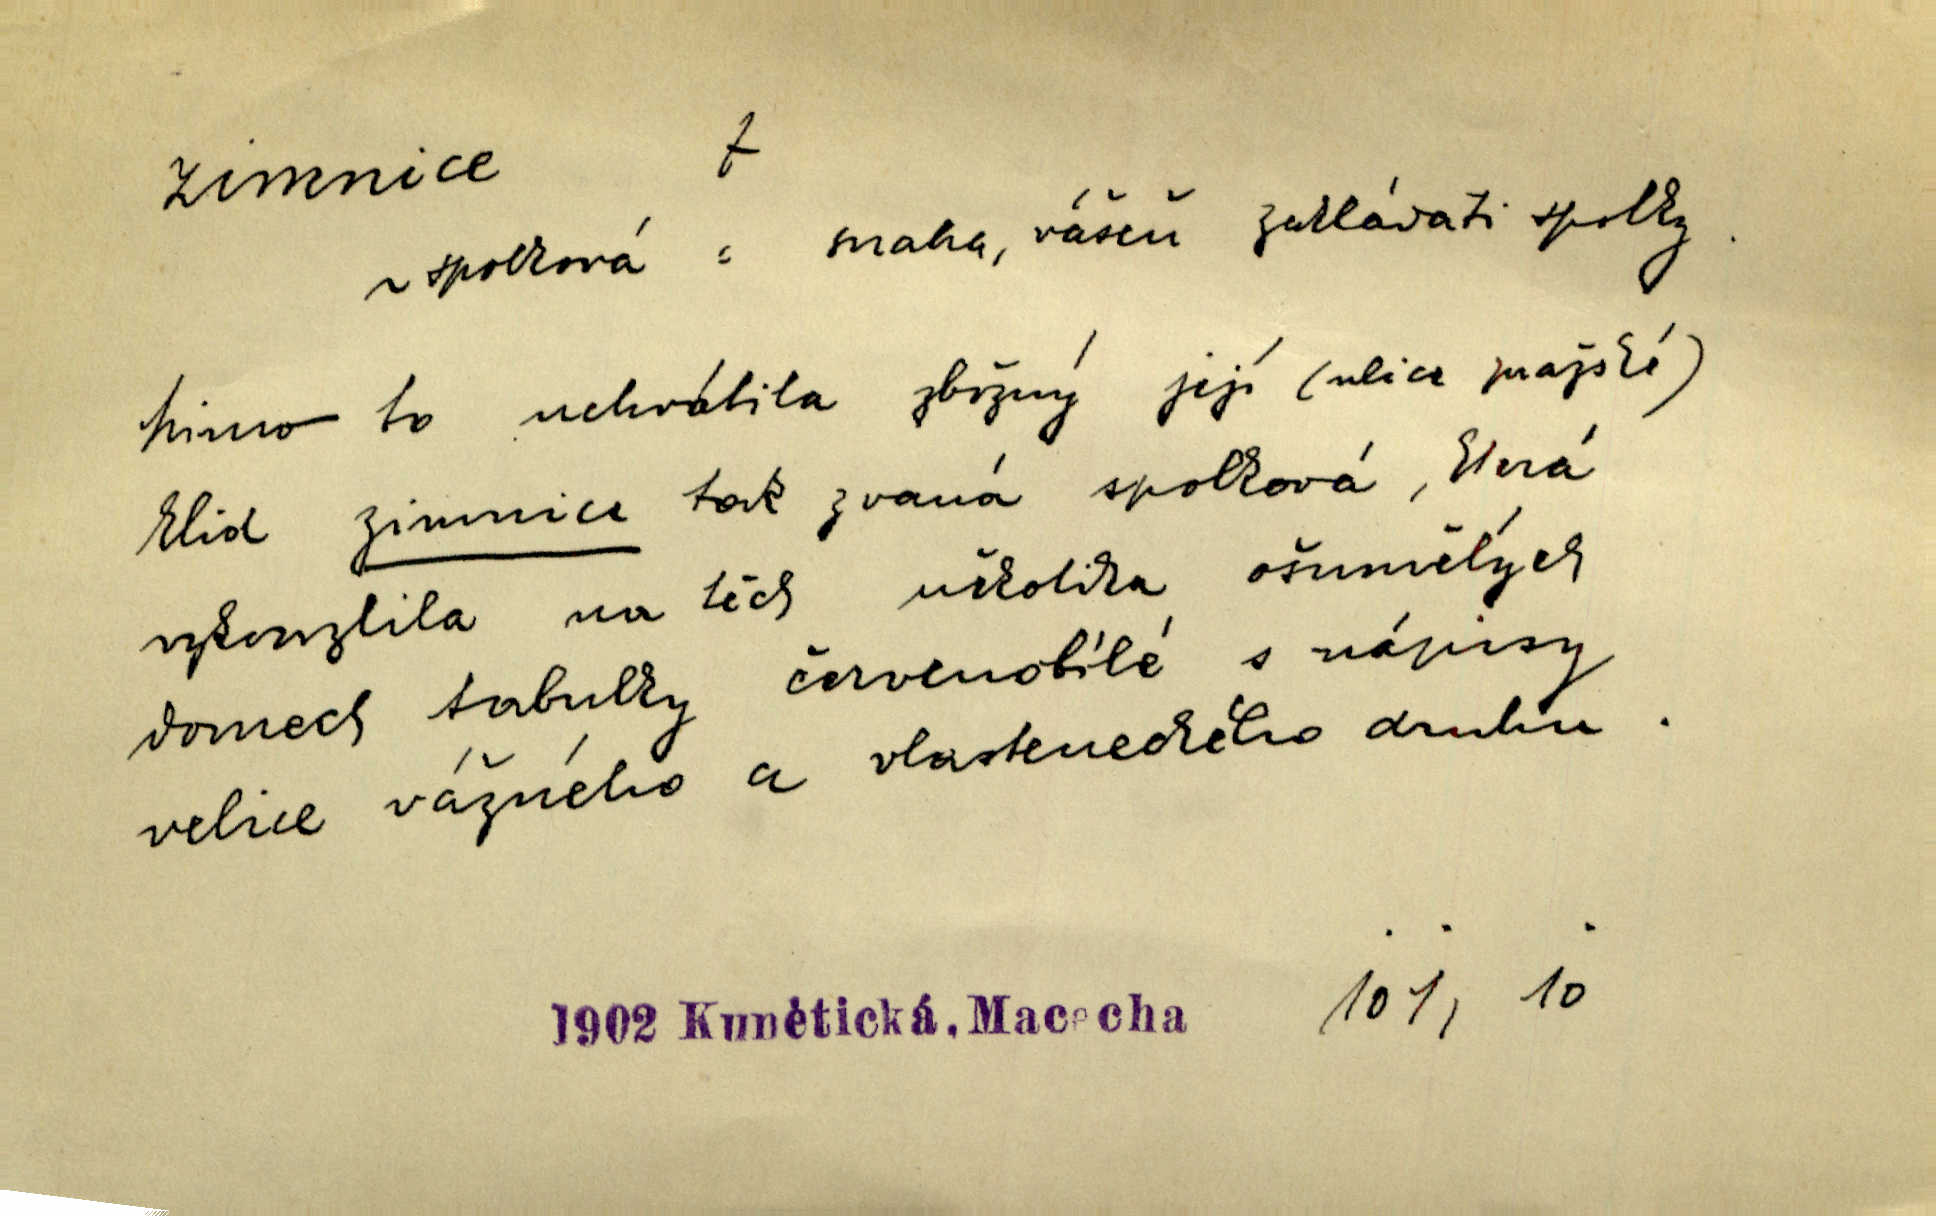 zimnice f
~ spolková = snaha, vášeň zakládati spolky.
Mimo to uchvátila zbožný její (ulice pražské)
klid zimnice tak zvaná spolková, která
vykouzlila na těch několika ošumělých
domech tabulky červenobílé s nápisy
velice vážného a vlasteneckého druhu.
1902 Kunětická, Macecha 101, 10